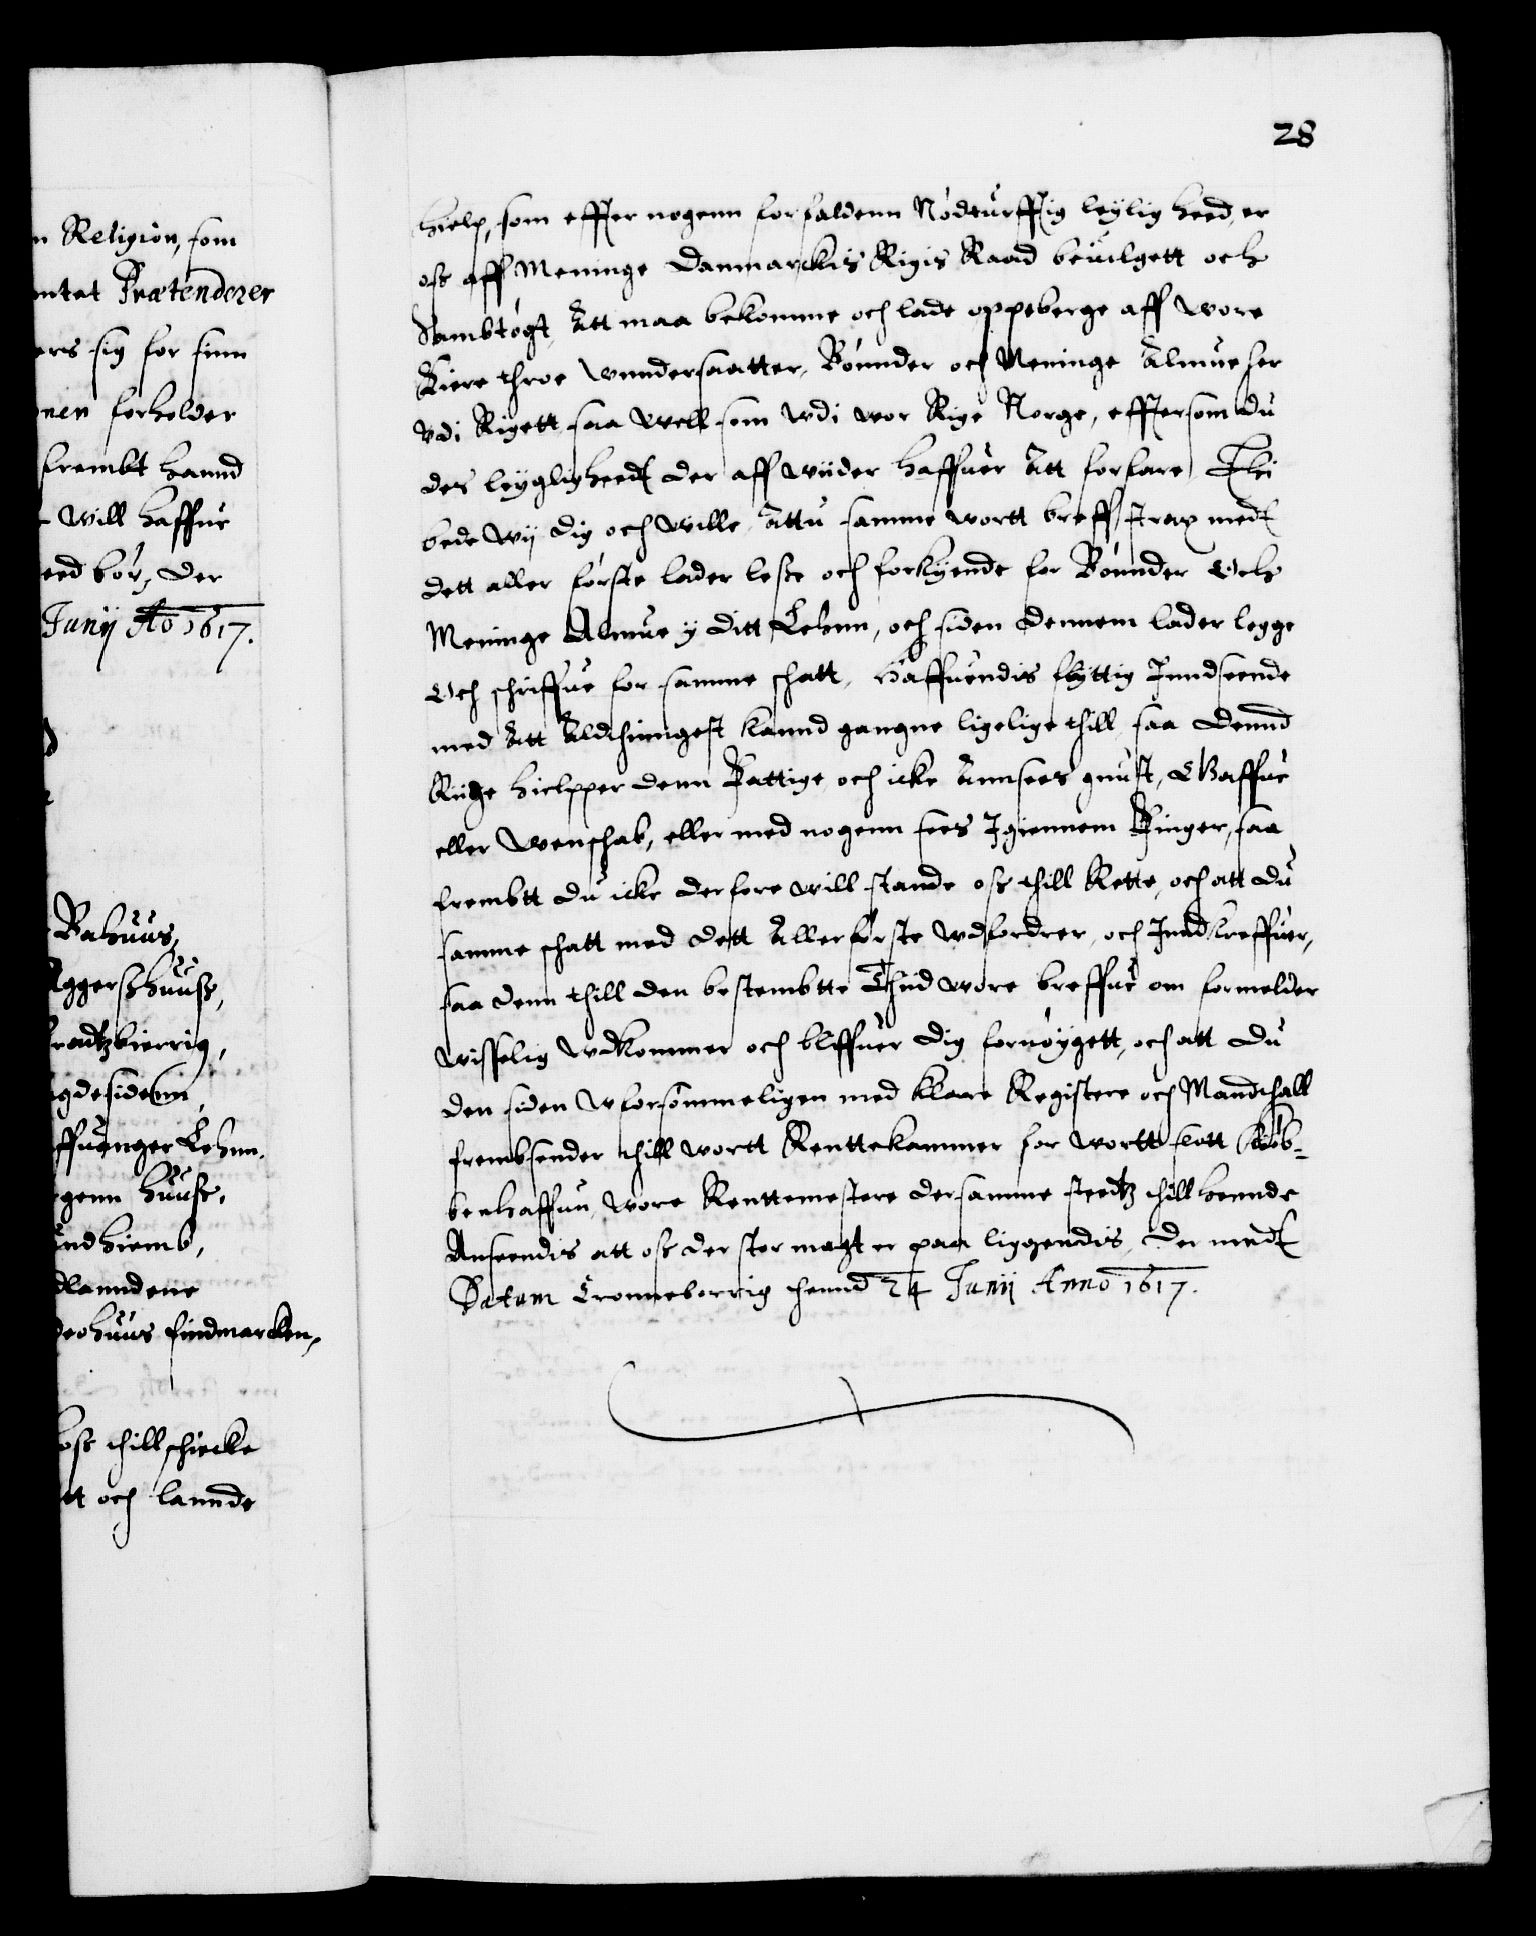 n Religion, som
ntet Prætenderer
ers sig for sinn
nen forholder
frembt hannd
will haffue
eed bör, der
Junij Ao 1617.
Bahuus,
Aggerszhuusz,
bratzbierrig,
gdesidenn
ffuanger Lehnn.
genn huusz,
undhiemb,
dlanndene
dröhuus findmarcken,
osz thillschicke
tt och lannde
28
hielp, som effter nogenn forfaldenn Nödturfftig leylig heed, er
osz aff Meninge Danmarckis Rigis Raad beuilgett och
Sambtögt, Att maa bekomme och lade oppeberge aff wore
Kiere throe wnndersaatter, Bönnder och Meninge Almue her
vdi Rigett saa well som wdi wor Rige Norge, efftersom du
des leyligheedt der aff wiider haffuer Att forfare, Thi
bede wij dig och wille, Attu samme wortt breff strax medt
dett aller förste lader lesze och forkynde for Bönnder Och
Meninge Almue y ditt Lehnn, och siden dennem lader legge
Och schriffue for samme schatt, haffuendis flyttig Inndseende
med Att Aldthinngest kannd gangne ligelige thill, saa dennd
Riige hielpper denn Fattige och icke Annsees gunst, Gaffue
eller wenschab, eller med nogenn sees Igiennem Finger, saa
frembtt du icke derfore will stande osz thill Rette, och att du
samme schatt med dett Allerförste wdfordrer, och Inndkreffuer,
saa denn thill den bestembtte Thiid wore breffue om formelder
wisselig wdkommer och bliffuer dig fornöygett, och att du
den siden wforsömmeligen med klare Registere och Mandthall
frembsender thill wortt Renttekammer for wortt slott Kiöb-
benhaffun, wore Renttemestere dersamme stedtz thill hennde
Anseendis att osz der stor magt er paa liggendis, der medt
Datum Cronneborrig thennd 24 Junij Anno 1617.